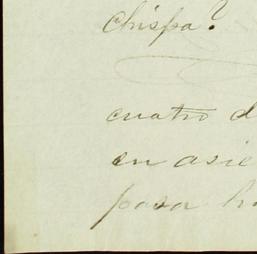 chispa?
cuatro d
en asie
para h